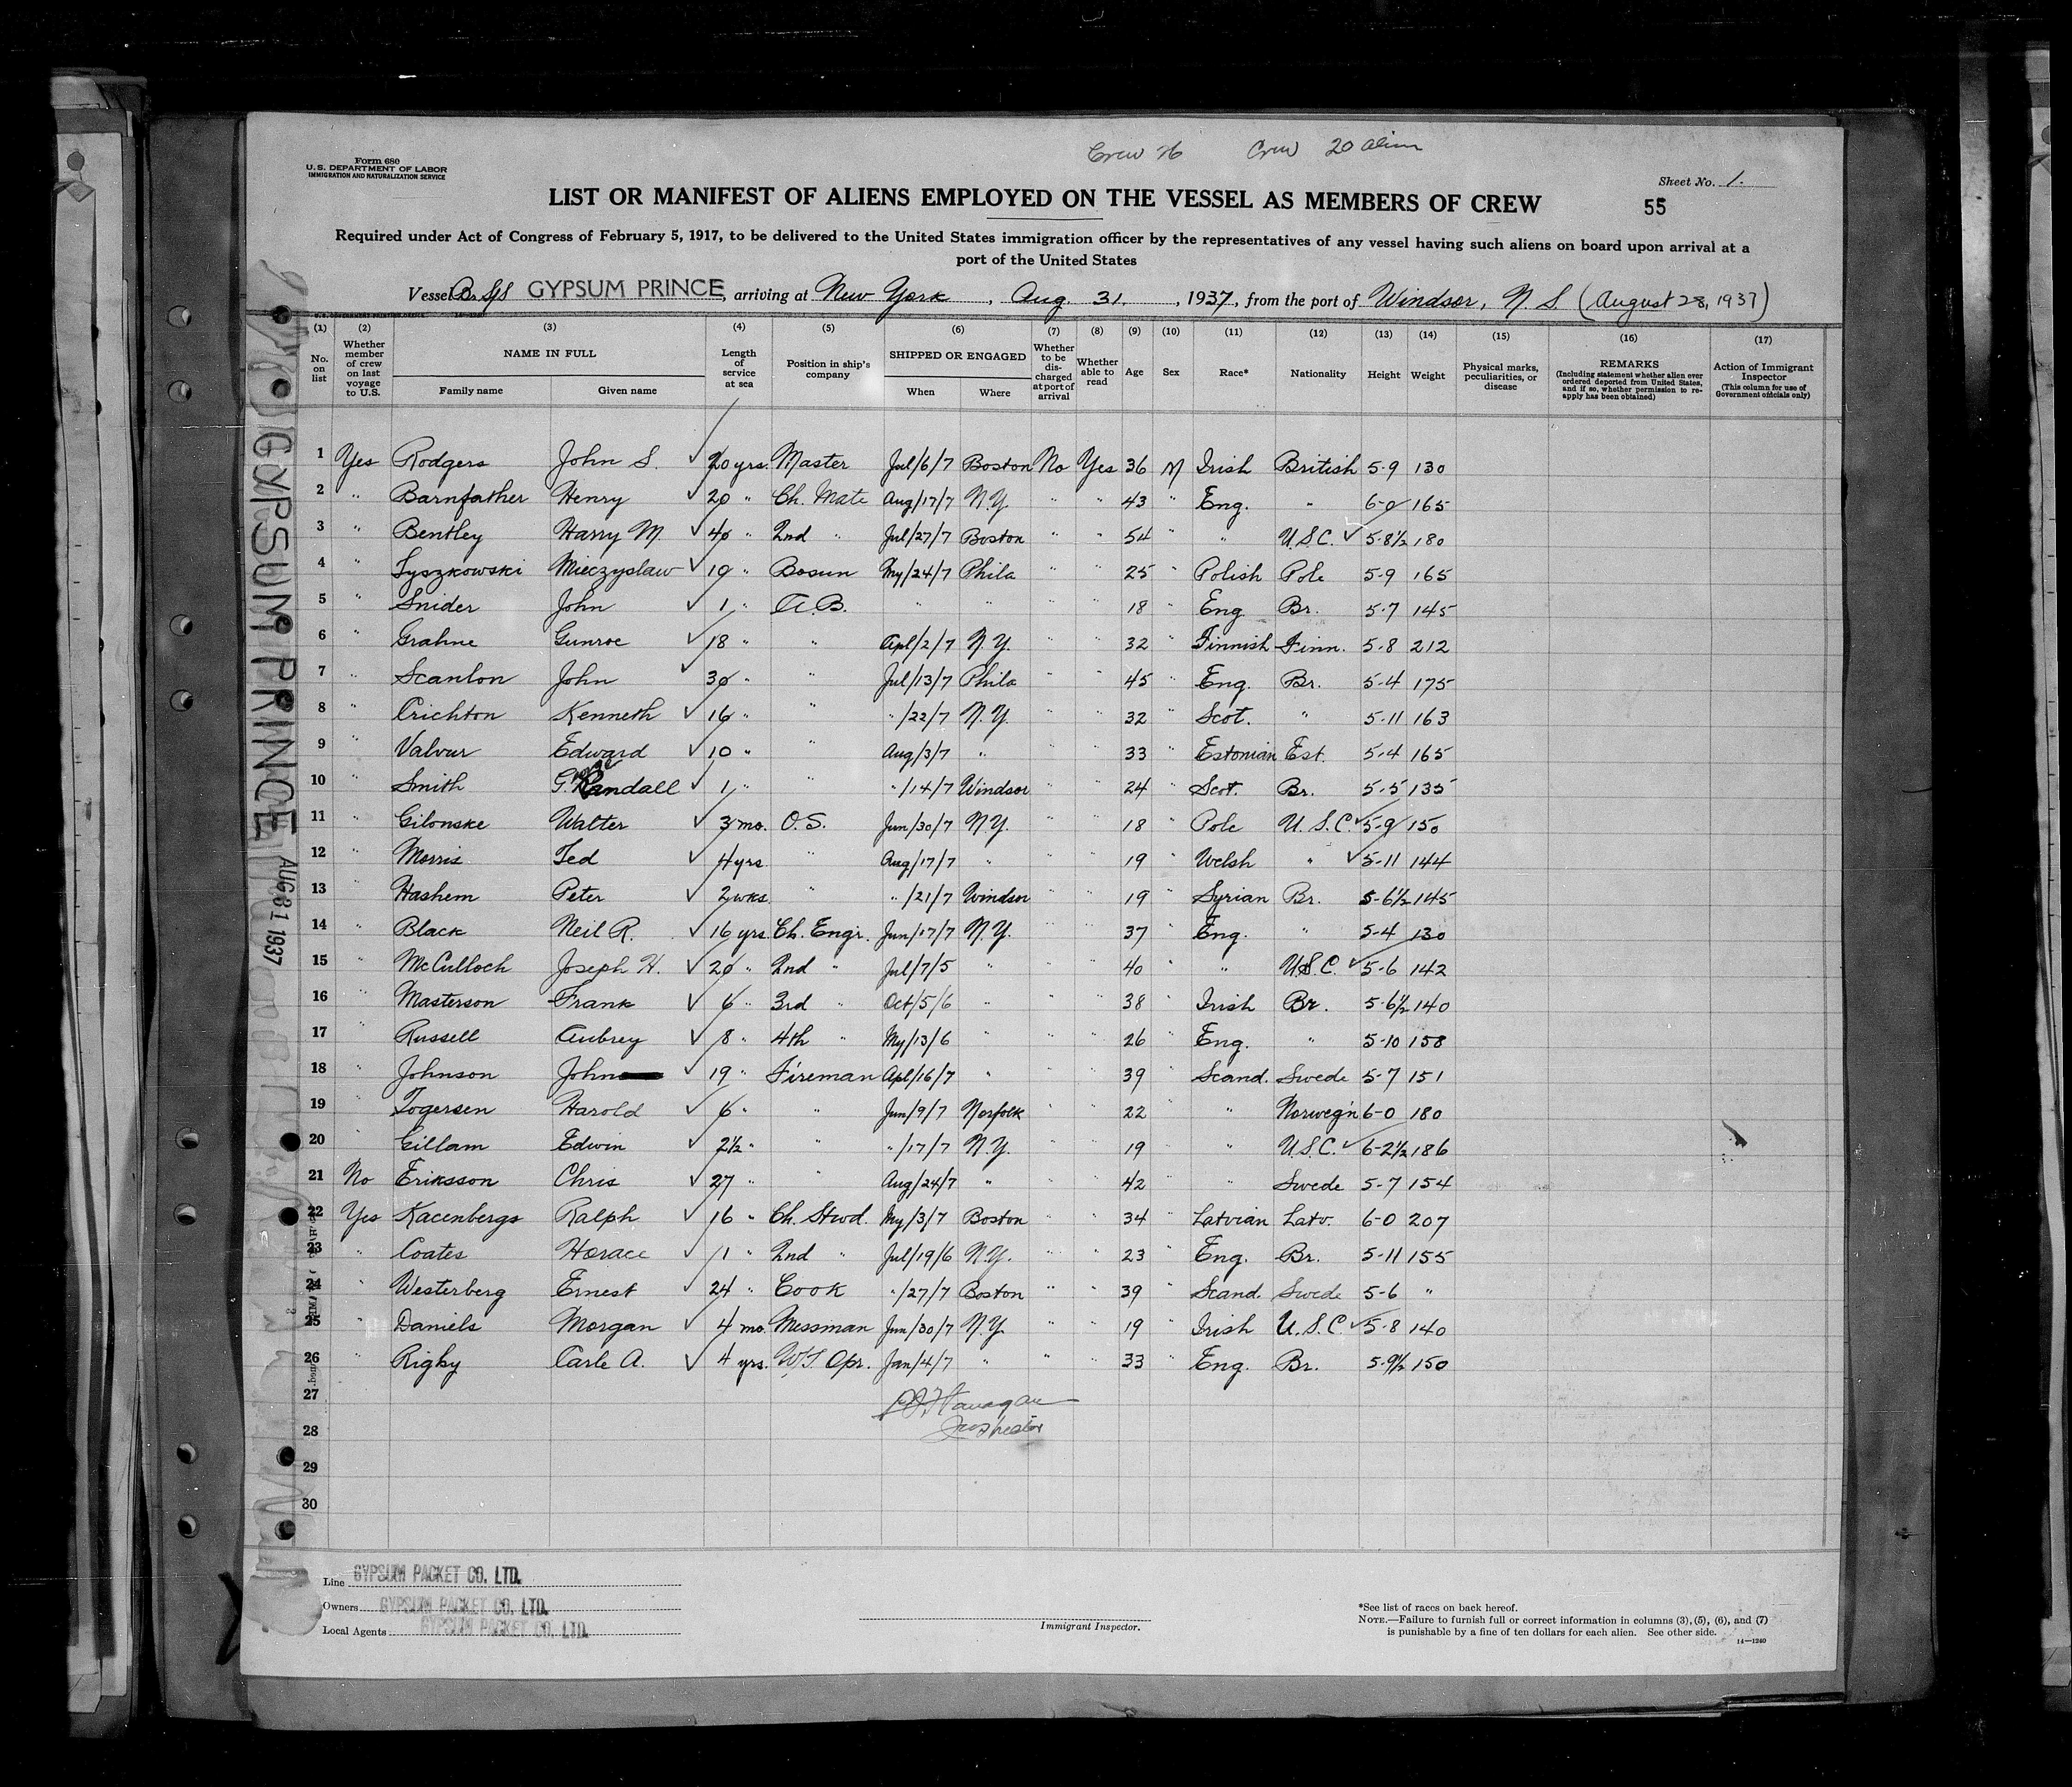 Crew 26 Crew 20 alien
Form 680
U.S. DEPARTMENT OF LABOR
IMMIGRATION AND NATURALIZATION SERVICE
Sheet No. 1.
LIST OR MANIFEST OF ALIENS EMPLOYED ON THE VESSEL AS MEMBERS OF CREW
55
Required under Act of Congress of February 5, 1917, to be delivered to the United States immigration officer by the representatives of any vessel having such aliens on board upon arrival at a
port of the United States
Vessel Br. S/S GYPSUM PRINCE, arriving at New York, Aug. 31, 1937, from the port of Windsor, N. S. (August 28, 1937)
(1) (2) (3) (4) (5) (6) (7) (8) (9) (10) (11) (12) (13) (14) (15) (16) (17)
No. on list
Whether member of crew on last voyage to U.S.
NAME IN FULL
Family name
Given name
Length of service at sea
Position in ship's company
SHIPPED OR ENGAGED
When
Where
Whether to be discharged at port of arrival
Whether able to read
Age
Sex
Race*
Nationality
Height
Weight
Physical marks, peculiarities, or disease
REMARKS
(Including statement whether alien ever ordered deported from United States, and if so, whether permission to re-apply has been obtained)
Action of Immigrant Inspector
(This column for use of Government officials only)
1 Yes Rodgers John S. ✓ 20 yrs. Master Jul/6/7 Boston No Yes 36 M Irish British 5-9 130
2 " Barnfather Henry ✓ 20 " Ch. Mate Aug/17/7 N.Y. " " 43 " Eng. " 6-0 165
3 " Bentley Harry M. ✓ 40 " 2nd " Jul/27/7 Boston " " 54 " " U.S.C. ✓ 5-8½ 180
4 " Lyszkowski Mieczyslaw ✓ 10 " Bosun My/24/7 Phila " " 25 " Polish Pole 5-9 165
5 " Snider John ✓ 1 " A.B. " " " " 18 " Eng Br. 5-7 145
6 " Grahne Gunroe ✓ 18 " " Apl/2/7 N.Y. " " 32 " Finnish Finn. 5-8 212
7 " Scanlon John ✓ 30 " " Jul/13/7 Phila " " 45 " Eng. Br. 5-4 175
8 " Crichton Kenneth ✓ 16 " " " /22/7 N.Y. " " 32 " Scot. " 5-11 163
9 " Valvur Edward ✓ 10 " " Aug/3/7 " " " 33 " Estonian Est. 5-4 165
10 " Smith G. Randall ✓ 1 " " " /14/7 Windsor " " 24 " Scot. Br. 5-5 135
11 " Gilonske Walter ✓ 3 mo. O.S. Jun/30/7 N.Y. " " 18 " Pole U.S.C. ✓ 5-9 150
12 " Morris Ted ✓ 4 yrs " Aug/17/7 " " " 19 " Welsh " ✓ 5-11 144
13 " Hashem Peter ✓ 2 wks. " " /21/7 Windsor " " 19 " Syrian Br. 5-6½ 145
14 " Black Neil R. ✓ 16 yrs. Ch. Engr. Jun/17/7 N.Y. " " 37 " Eng. " 5-4 130
15 " McCulloch Joseph H. ✓ 20 " 2nd " Jul/7/5 " " " 40 " " U.S.C. ✓ 5-6 142
16 " Masterson Frank ✓ 6 " 3rd " Oct/5/6 " " " 38 " Irish Br. 5-6½ 140
17 " Russell Aubrey ✓ 8 " 4th " My/13/6 " " " 26 " Eng. " 5-10 158
18 " Johnson John ✓ 19 " Fireman Apl/16/7 " " " 39 " Scand. Swede 5-7 151
19 " Togersen Harold ✓ 6 " " Jun/9/7 Norfolk " " 22 " " Norweg'n 6-0 180
20 " Gillam Edwin ✓ 2½ " " " /17/7 N.Y. " " 19 " " U.S.C. ✓ 6-2½ 186
21 No Eriksson Chris ✓ 27 " " Aug/24/7 " " " 42 " " Swede 5-7 154
22 Yes Kacenbergs Ralph ✓ 16 " Ch. Stwd. My/3/7 Boston " " 34 " Latvian Latv. 6-0 207
23 " Coates Horace ✓ 1 " 2nd " Jul/19/6 N.Y. " " 23 " Eng. Br. 5-11 155
24 " Westerberg Ernest ✓ 24 " Cook " /27/7 Boston " " 39 " Scand. Swede 5-6 "
25 " Daniels Morgan ✓ 4 mo. Messman Jun/30/7 N.Y. " " 19 " Irish U.S.C. ✓ 5-8 140
26 " Rigby Carle A. ✓ 4 yrs. W.T. Opr. Jan/4/7 " " " 33 " Eng. Br. 5-9½ 150
27
Flanagan
28
Inspector
29
30
GYPSUM PRINCE AUG 31 1937
Line GYPSUM PACKET CO. LTD.
Owners GYPSUM PACKET CO. LTD.
Local Agents GYPSUM PACKET CO. LTD.
Immigrant Inspector.
*See list of races on back hereof.
NOTE.—Failure to furnish full or correct information in columns (3), (5), (6), and (7)
is punishable by a fine of ten dollars for each alien. See other side.
14—1240